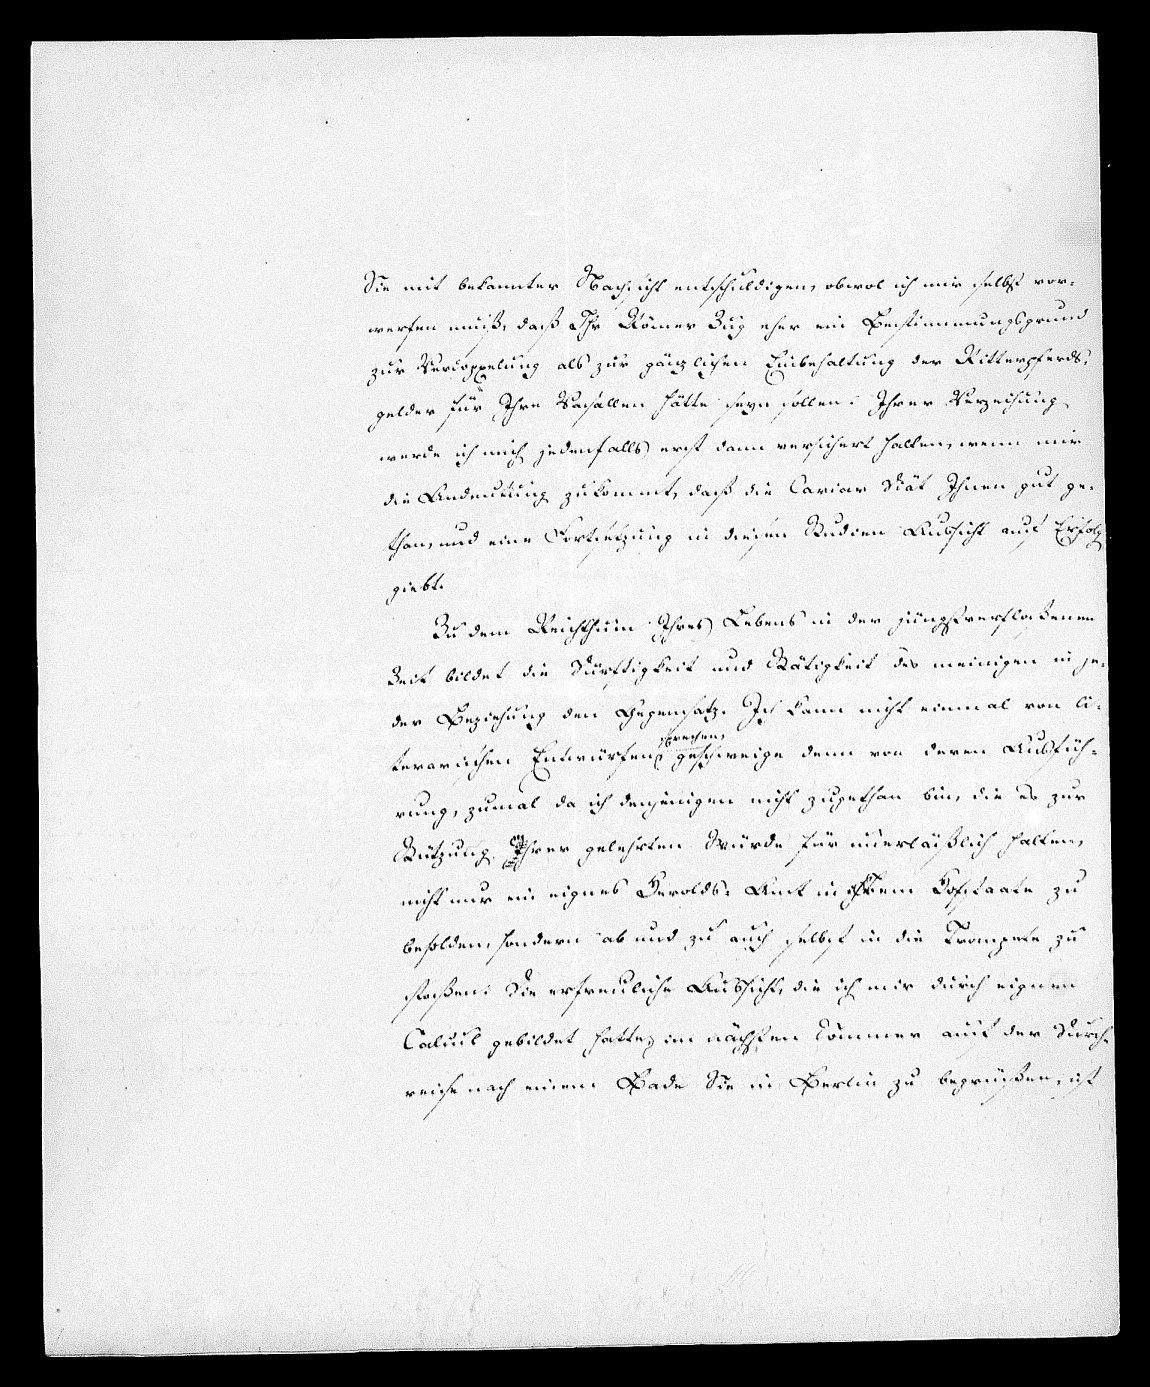 Sie mit bekannter Nachsicht entschuldigen, obwol ich mir selbst vor-
werfen muß, daß Ihr Römer Zug eher ein Bestimmungsgrund
zur Verdoppelung als zur gänzlichen Einbehaltung der Ritterpferds-
gelder für Ihre Vasallen hätte seyn sollen. Ihrer Verzeihung
werde ich mich jedenfalls erst dann versichert halten, wenn mir
die Andeutung zukommt, daß die Caviar Diät Ihnen gut ge-
than, und eine Fortsetzung in diesen Studien Aussicht auf Erfolg
giebt.
Zu dem Reichthum Ihres Lebens in der jüngstverfloßenen
Zeit bildet die Dürftigkeit und Stätigkeit des meinigen in je-
der Beziehung den Gegensatz. Ich kann nicht einmal von li-
terarischen Entwürfen sprechen, geschweige denn von deren Ausfüh-
rung, zumal da ich denjenigen nicht zugethan bin, die es zur
Stützung Ihrer gelehrten Würde für unerläßlich halten,
nicht nur ein eignes Herolds-Amt in Hofstaate zu
besolden, sondern ab und zu auch selbst in die Trompete zu
stoßen. Die erfreuliche Aussicht, die ich mir durch eignen
Calcul gebildet hatte, im nächsten Sommer auf der Durch-
reise nach einem Bade Sie in Berlin zu begrüßen, ist